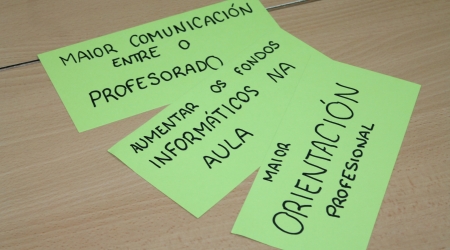 MAIOR COMUNICACIÓN
ENTRE O
PROFESORADO
AUMENTAR OS FONDOS
INFORMÁTICOS NA
AULA
MAIOR
ORIENTACIÓN
PROFESIONAL